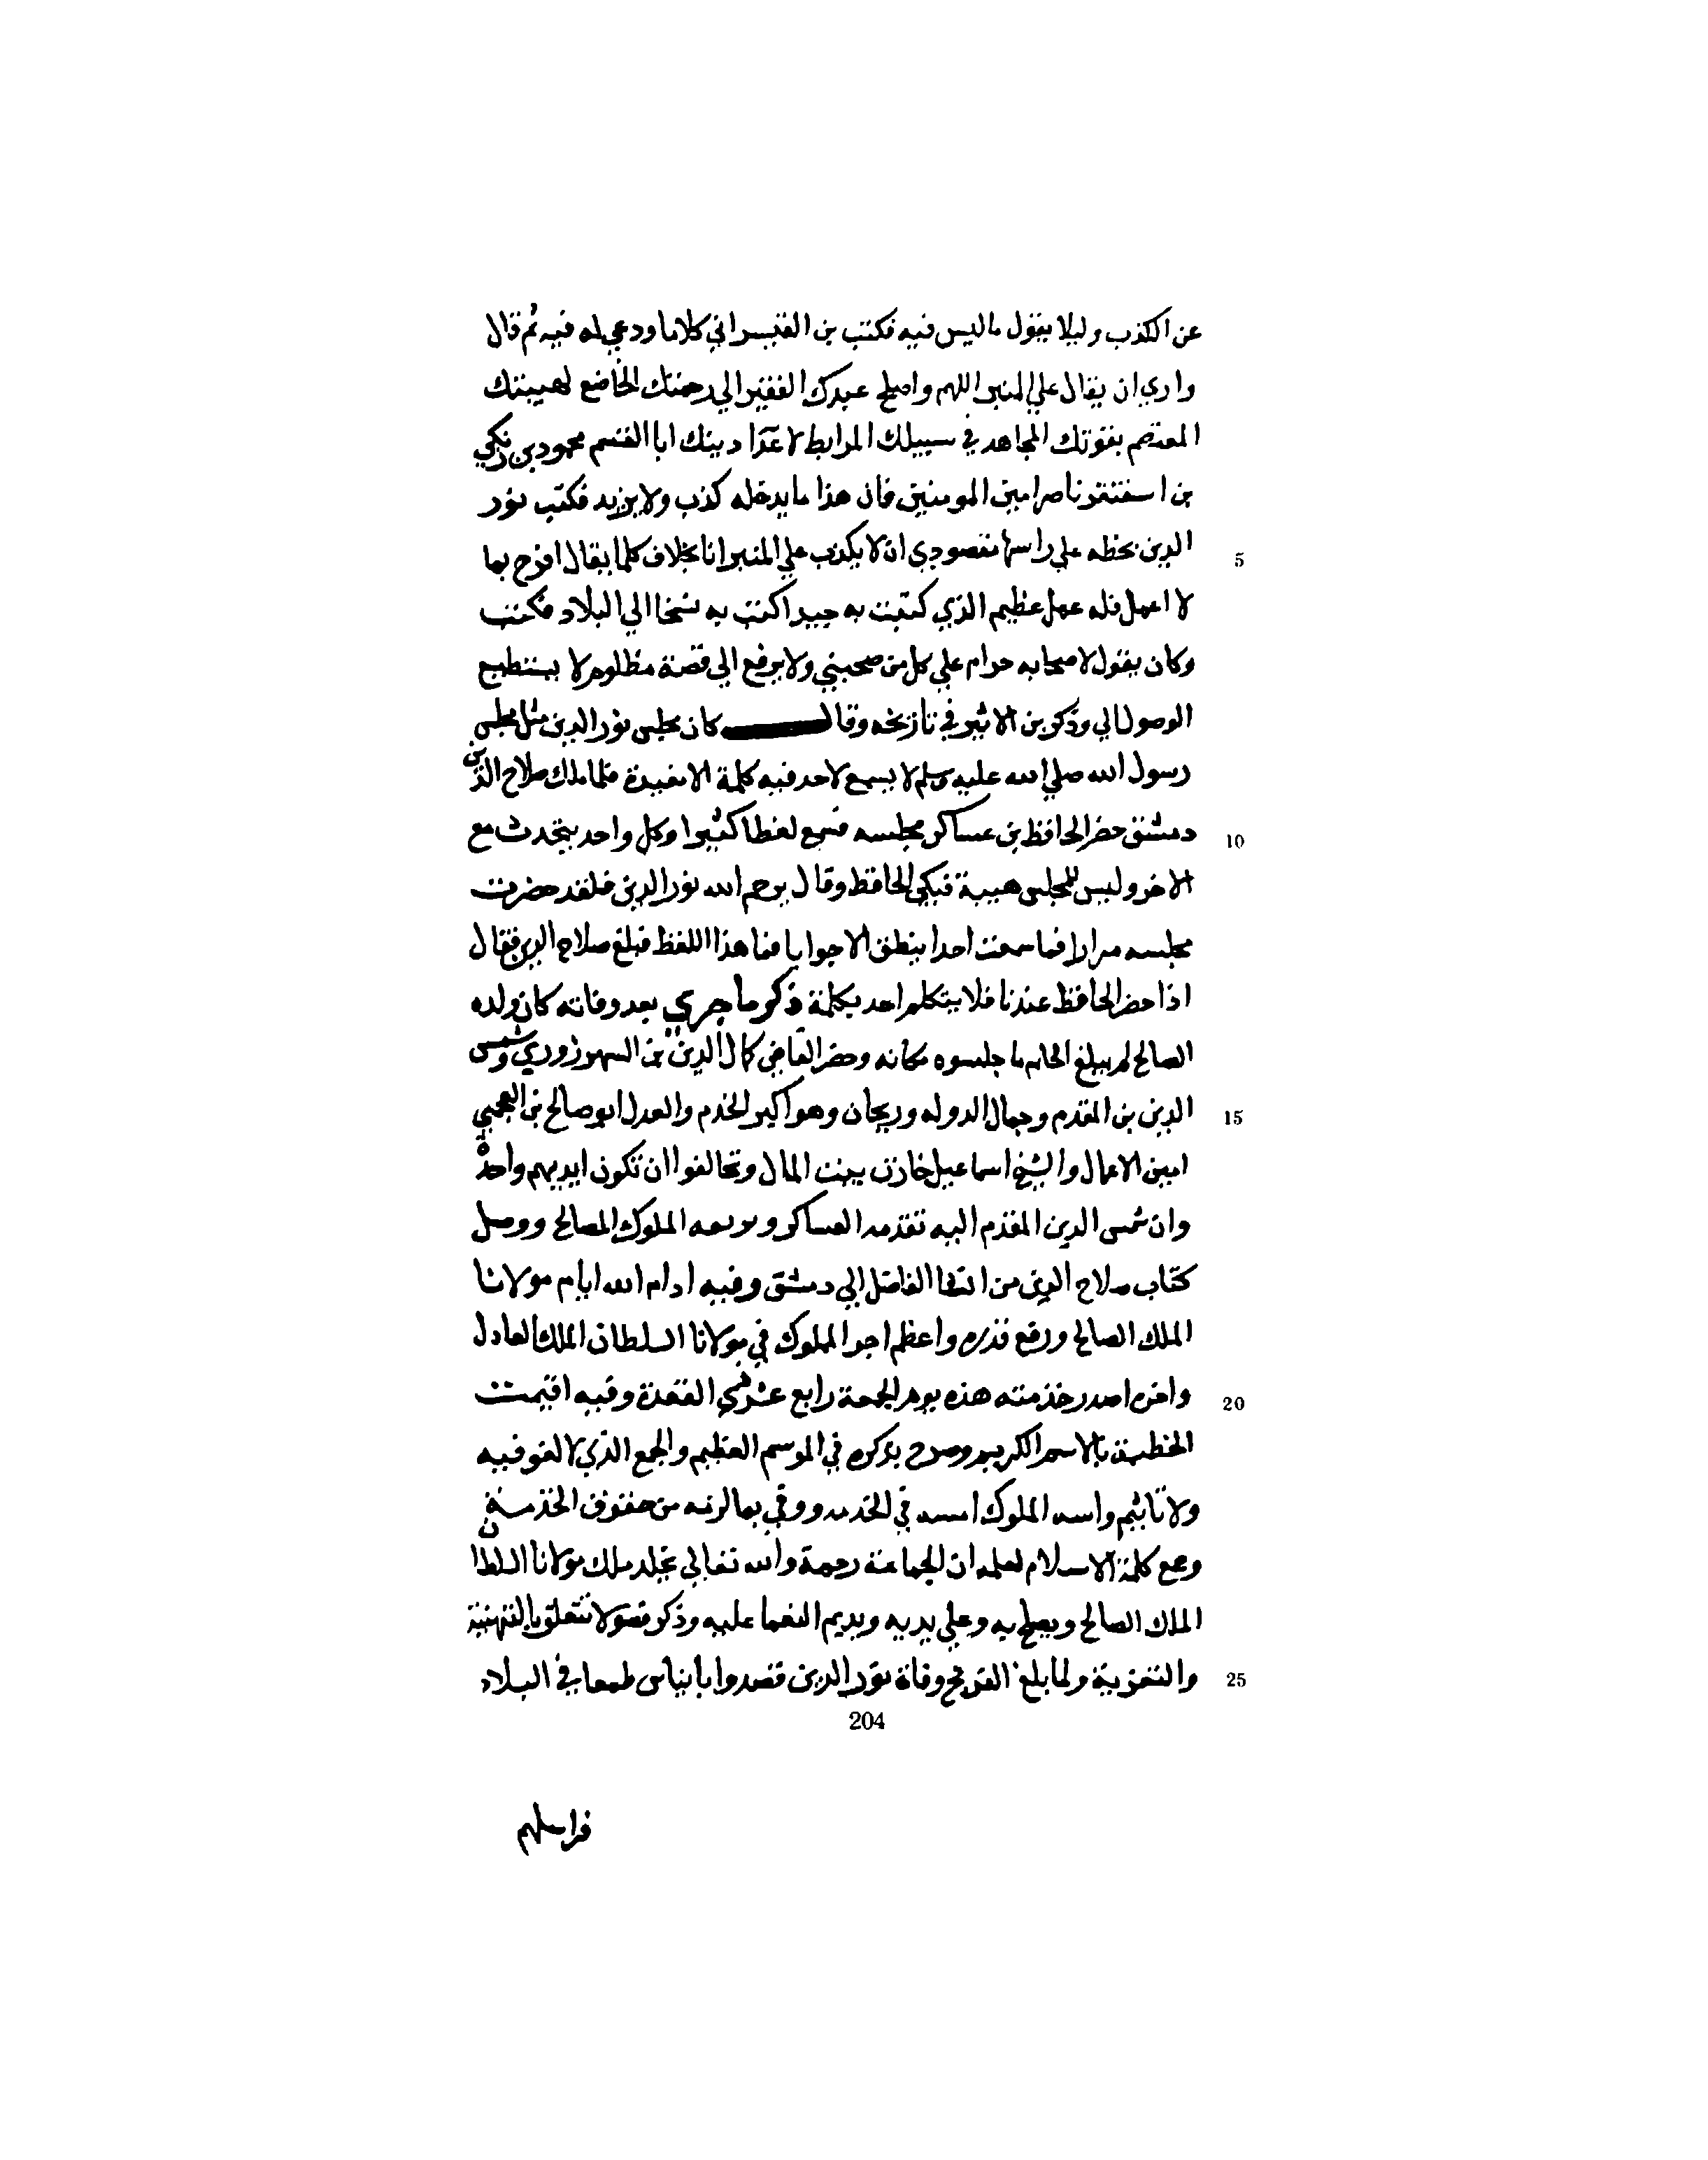 عن الكذب وليلا يقول ما ليس فيه فكتب بن القيسراني كلاما ودعي له فيه ثم قال
واري ان يقال علي المنبر اللهم واصلح عبدك الفقير الي رحمتك الخاضع لهيبتك
المعتصم بقوتك المجاهد في سبيلك المرابط لاعدا دينك ابا القسم محمود بن زنكي
بن اسقنقر ناصر امير المومنين فان هذا ما يدخله كذب ولا يزيد فكتب نور
5 الدين بخطه علي راسها مقصودي ان لا يكذب علي المنبر انا بخلاف كلما يقال افرح بما
لا اعمل قله عمل عظيم الذي كتبت به جيد اكتب به نسخا الي البلاد فكتب
وكان يقول لاصحابه حرام علي كل من صحبني ولا يرفع الي قصة مظلوم لا يستطيع
الوصول الي وذكر بن الاثير في تاريخه وقال كان مجلس نور الدين مثل مجلس
رسول الله صلي الله عليه وسلم لا يسمع لاحد فيه كلمة الا مفيدة فلما ملك صلاح الدين
10 دمشق حضر الحافظ بن عساكر مجلسه فسمع لغطا كثيرا وكل واحد يتحدث مع
الاخر وليس للمجلس هيبة فبكي الحافظ وقال يرحم الله نور الدين فلقد حضرت
مجلسه مرارا فما سمعت احدا ينطق الا جوابا فما هذا اللغظ فبلغ صلاح الدين فقال
اذا حضر الحافظ عندنا فلا يتكلم احد بكلمة ذكر ما جري بعد وفاته كان ولده
الصالح لم يبلغ الحلم ما جلسوه مكانه وحضر القاضي كمال الدين بن السهرزوري وشمس
15 الدين بن المقدم وجمال الدوله وريحان وهو اكبر الخدم والعدل ابو صالح بن العجمي
امين الاعمال والشيخ اسماعيل خازن بيت المال وتحالفوا ان تكون ايديهم واحدة
وان شمس الدين المقدم اليه تقدمه العساكر المملوك الصالح ووصل
كتاب صلاح الدين من انشا الفاضل الي دمشق وفيه ادام الله ايام مولانا
الملك الصالح ورفع قدره واعظم اجر المملوك في مولانا السلطان الملك العادل
20 اصدر خدمته هذه يوم الجمعة رابع عشر ذي القعدة وفيه اقيمت
الخطبة بالاسم الكريم وصرح بذكره في الموسم العظيم والجمع الذي لا لغو فيه
ولا تاثيم المملوك امسه في الخدمه ووفي بما لزمه من حقوق الخدمة
وجمع كلمة الاسلام لعلمه ان الجماعة رحمة والله تعالي يخلد ملك مولانا السلطان
الملك الصالح ويصلح به وعلي يديه ويديم النعما عليه وذكر فصولا تتعلق بالتهنية
25 والتعزية ولما بلغ الفرنج وفاة نور الدين قصدوا بانياس طمعا في البلاد
204
فراسلهم